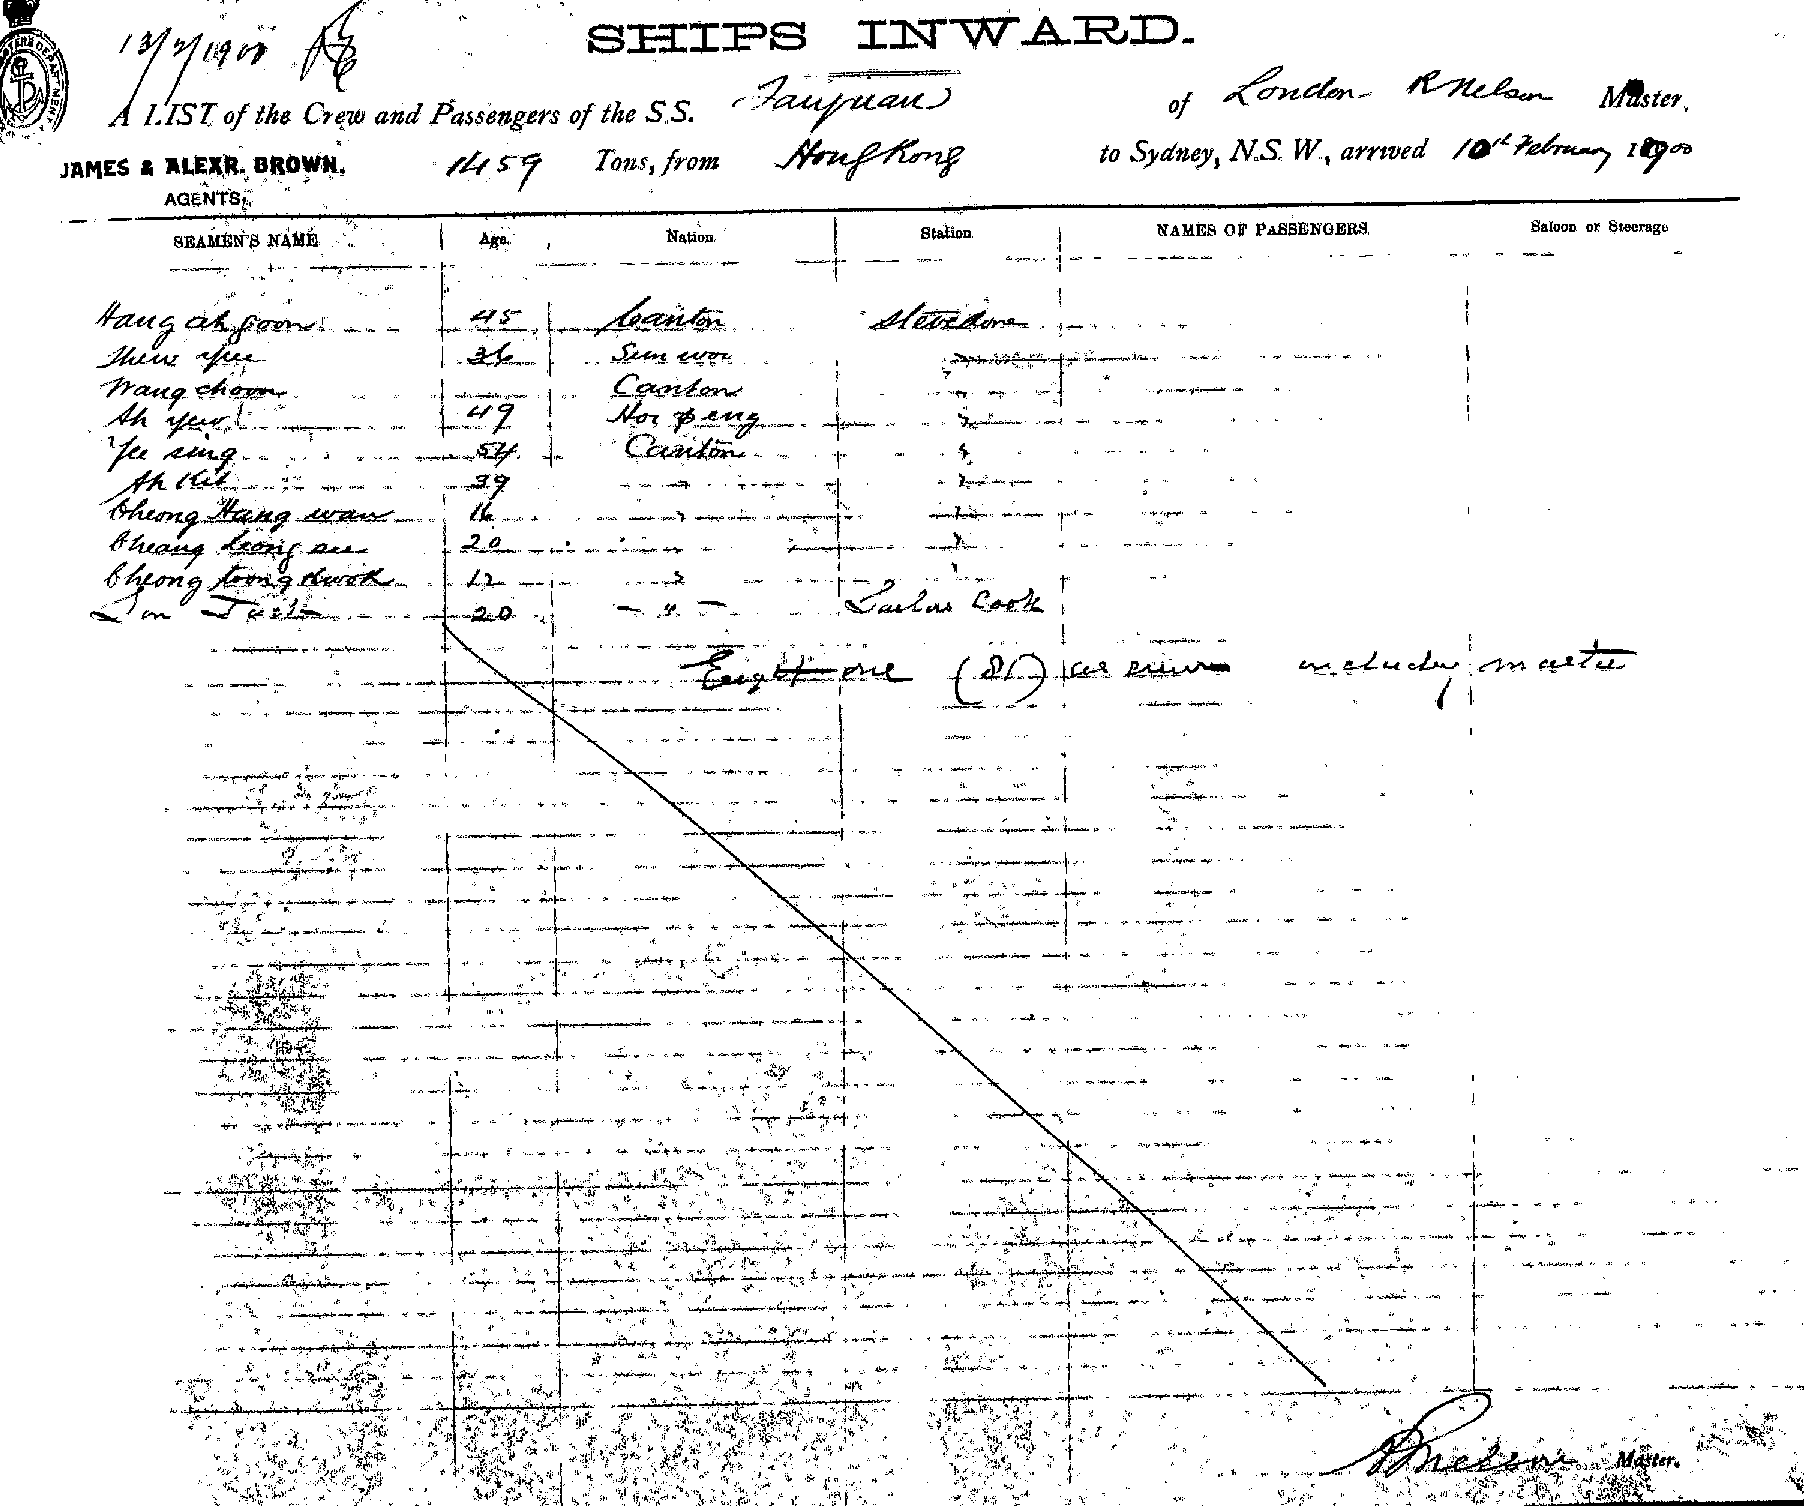 SHIPS INWARD.
13/2/1900
A LIST of the Crew and Passengers of the S.S. Taiyuan of London R Nelson Master.
JAMES & ALEXR. BROWN, 1459 Tons, from Hong Kong to Sydney, N.S.W., arrived 10th February 1900
AGENTS,
SEAMEN'S NAME Age Nation Station NAMES OF PASSENGERS Saloon or Steerage
Hang ah foon 45 Canton Stevedore
36 Sun woi
Wang choon Canton
Ah yew 49 Hoi peng "
Yee sing 54 Canton "
Ah Kit 39 " "
Cheong Hang wan 16 " "
Cheang Leong 20 " "
Cheong toong kwok 12 " "
20 - " - Sailors Cook
Eighty one (81) all crew including master
RNelson Master.